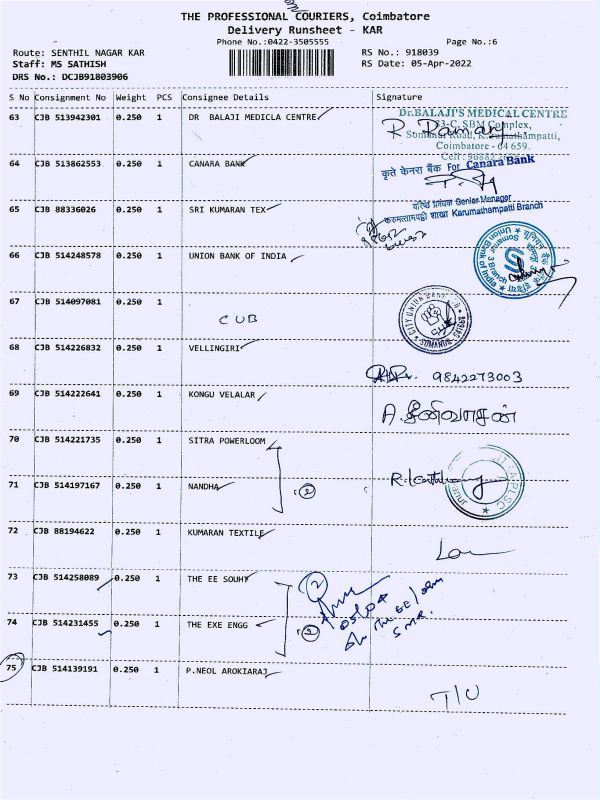 THE PROFESSIONAL COURIERS, Coimbatore
Delivery Runsheet - KAR
Phone No.:0422-3505555
Page No.:6
Route: SENTHIL NAGAR KAR
RS No.: 918039
Staff: MS SATHISH
RS Date: 05-Apr-2022
DRS No.: DCJB91803906
S No Consignment No Weight PCS Consignee Details Signature
63 CJB 513942301 0.250 1 DR BALAJI MEDICLA CENTRE
Dr.BALAJI'S MEDICAL CENTRE
33-C, SBM Complex,
Coimbatore - 641 659.
64 CJB 513862553 0.250 1 CANARA BANK
कृते केनरा बैंक For Canara Bank
वरिष्ठ प्रबंधक Senior Manager
करुमत्तमपट्टी शाखा Karumathampatti Branch
65 CJB 88336026 0.250 1 SRI KUMARAN TEX
66 CJB 514248578 0.250 1 UNION BANK OF INDIA
Union Bank of India
67 CJB 514097081 0.250 1 CUB
CITY UNION BANK
SOMANUR
68 CJB 514226832 0.250 1 VELLINGIRI
9842273003
69 CJB 514222641 0.250 1 KONGU VELALAR
A.சீனிவாசன்
70 CJB 514221735 0.250 1 SITRA POWERLOOM
71 CJB 514197167 0.250 1 NANDHA
2
72 CJB 88194622 0.250 1 KUMARAN TEXTILE
73 CJB 514258089 0.250 1 THE EE SOUHY
2
74 CJB 514231455 0.250 1 THE EXE ENGG
2
SMR.
75 CJB 514139191 0.250 1 P.NEOL AROKIARAJ
T/U